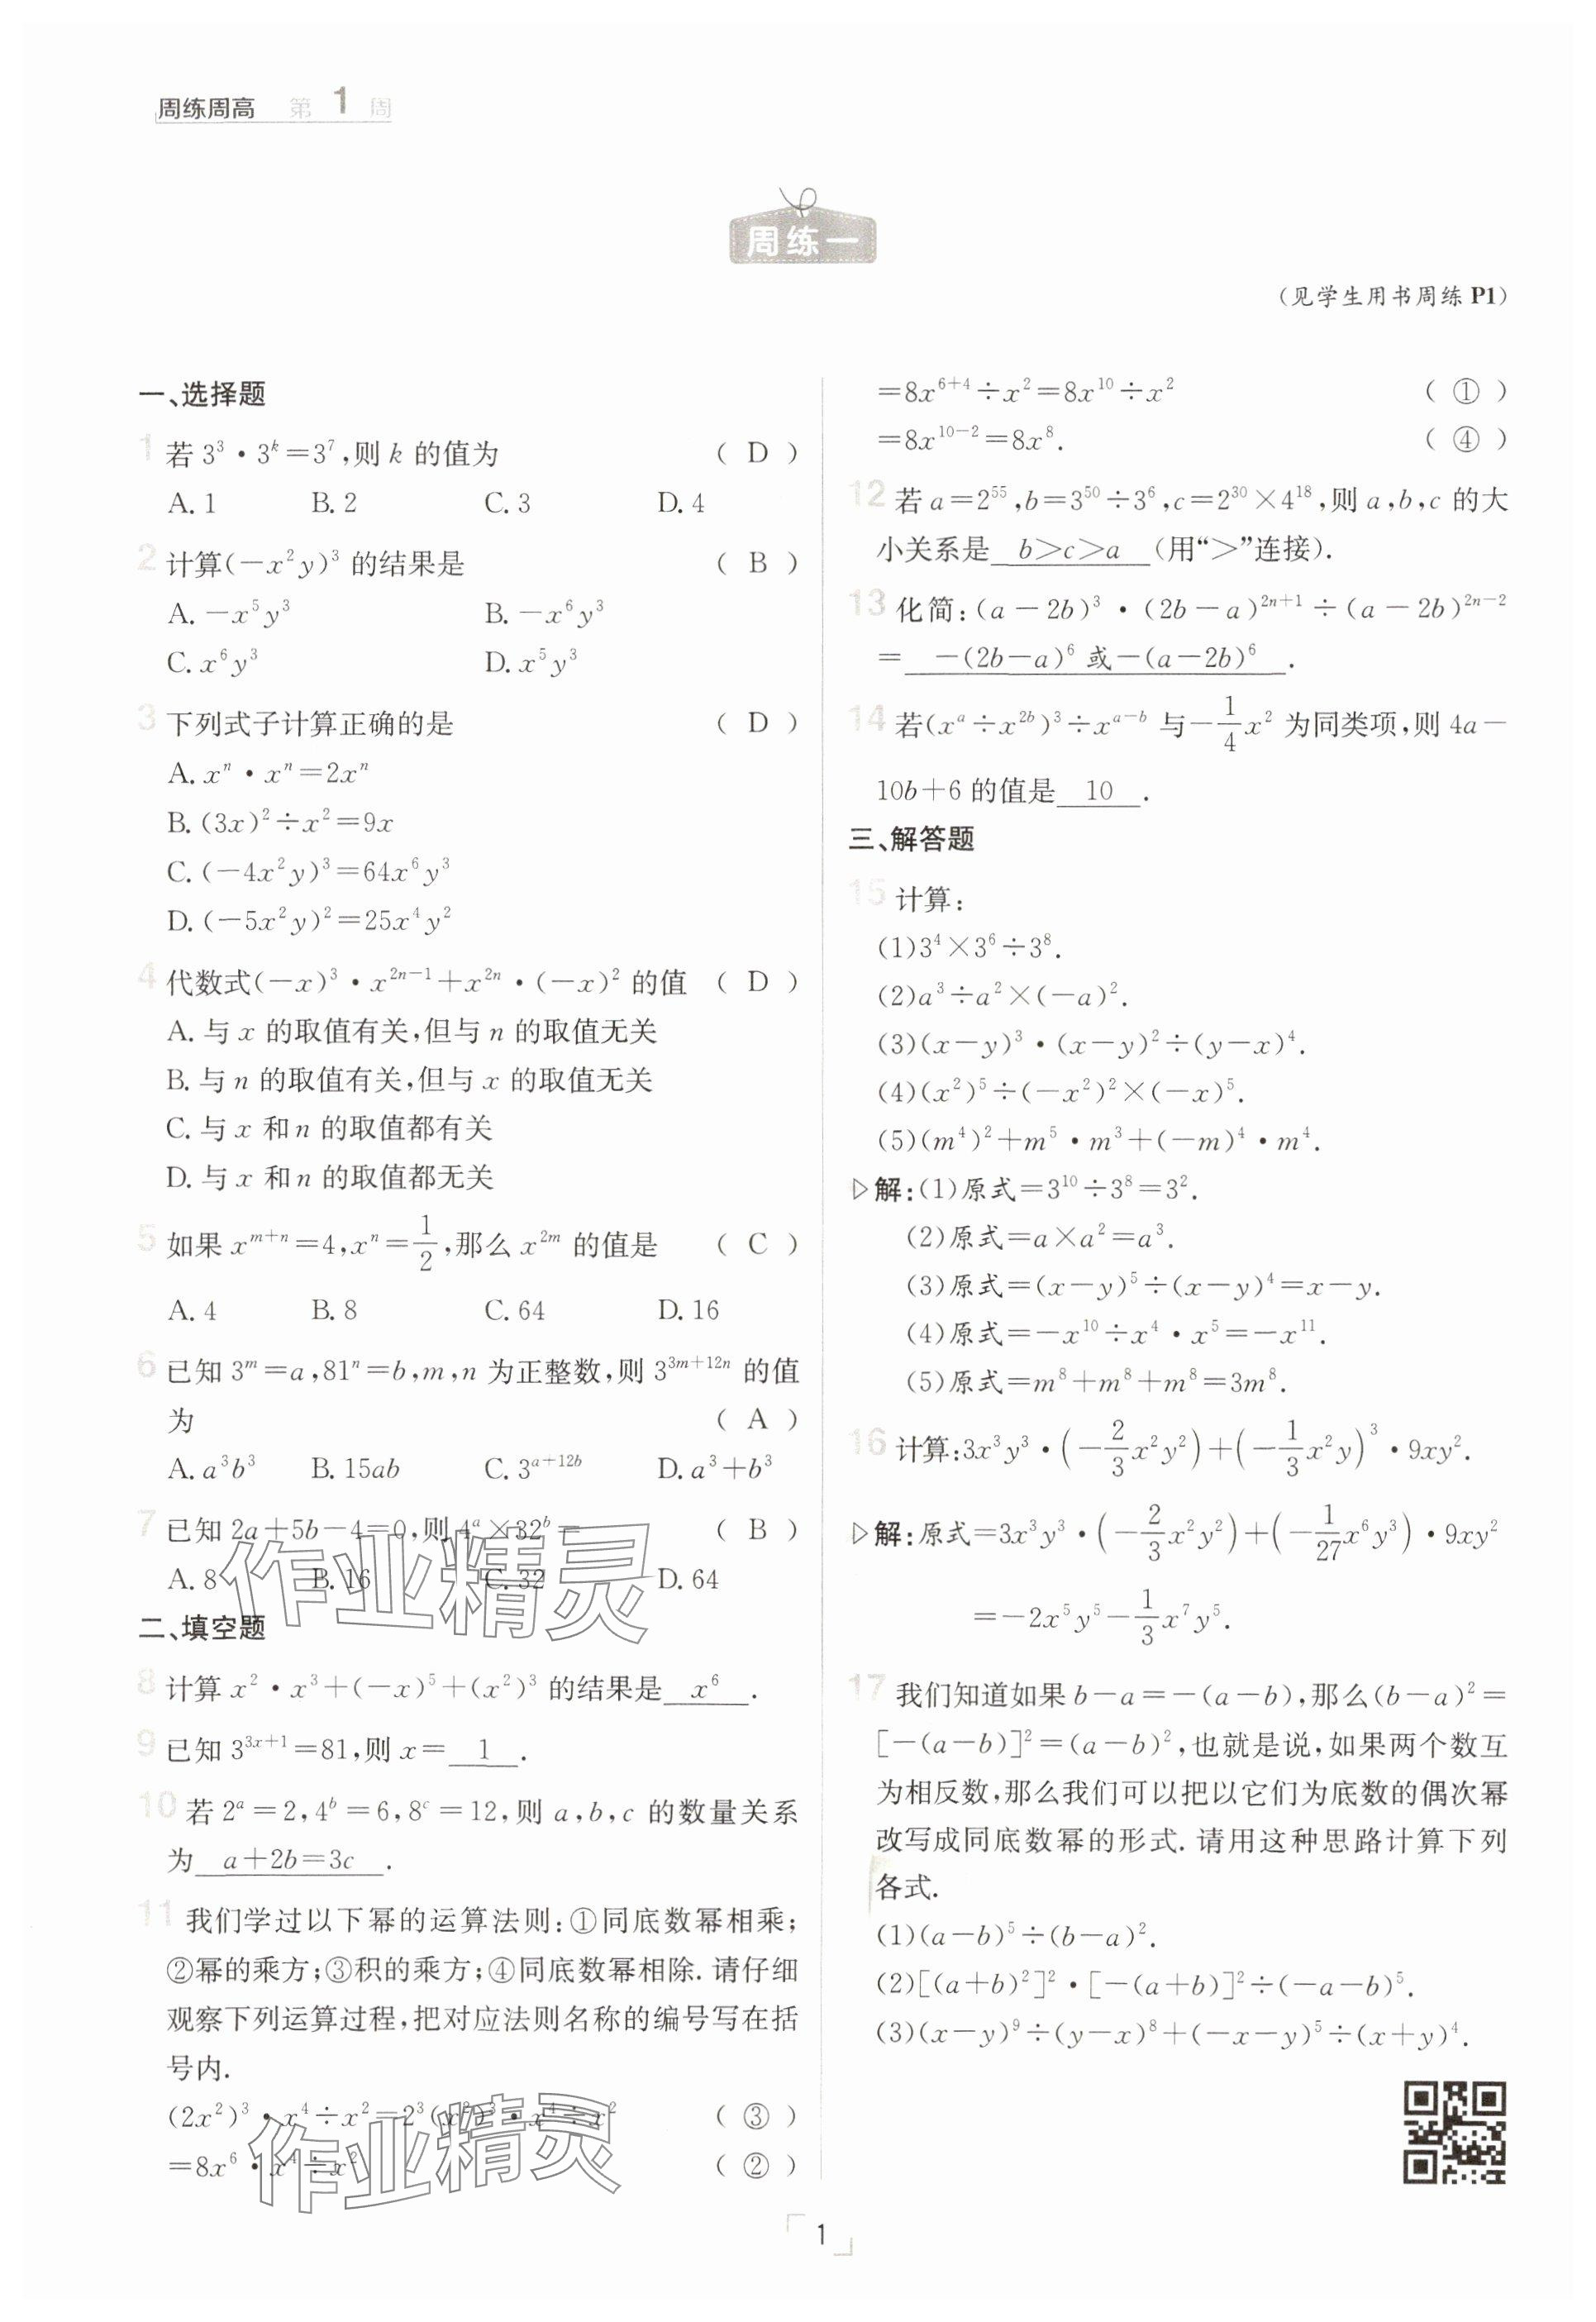 周练周高 第 1 周
周练一
(见学生用书周练 P1)
一、选择题
1 若 3³·3ᵏ=3⁷,则 k 的值为 ( D )
A. 1 B. 2 C. 3 D. 4
2 计算(-x²y)³ 的结果是 ( B )
A. -x⁵y³ B. -x⁶y³
C. x⁶y³ D. x⁵y³
3 下列式子计算正确的是 ( D )
A. xⁿ·xⁿ=2xⁿ
B. (3x)²÷x²=9x
C. (-4x²y)³=64x⁶y³
D. (-5x²y)²=25x⁴y²
4 代数式(-x)³·x²ⁿ⁻¹+x²ⁿ·(-x)² 的值 ( D )
A. 与 x 的取值有关,但与 n 的取值无关
B. 与 n 的取值有关,但与 x 的取值无关
C. 与 x 和 n 的取值都有关
D. 与 x 和 n 的取值都无关
5 如果 xᵐ⁺ⁿ=4,xⁿ=1/2,那么 x²ᵐ 的值是 ( C )
A. 4 B. 8 C. 64 D. 16
6 已知 3ᵐ=a,81ⁿ=b,m,n 为正整数,则 3³ᵐ⁺¹²ⁿ 的值
为 ( A )
A. a³b³ B. 15ab C. 3^(a+12b) D. a³+b³
7 已知 2a+5b-4=0,则 4ᵃ×32ᵇ= ( B )
A. 8 B. 16 C. 32 D. 64
二、填空题
8 计算 x²·x³+(-x)⁵+(x²)³ 的结果是 x⁶ .
9 已知 3³ˣ⁺¹=81,则 x= 1 .
10 若 2ᵃ=2,4ᵇ=6,8ᶜ=12,则 a,b,c 的数量关系
为 a+2b=3c .
11 我们学过以下幂的运算法则:①同底数幂相乘;
②幂的乘方;③积的乘方;④同底数幂相除. 请仔细
观察下列运算过程,把对应法则名称的编号写在括
号内.
(2x²)³·x⁴÷x²=2³(x²)³·x⁴÷x² ( ③ )
=8x⁶·x⁴÷x² ( ② )
=8x⁶⁺⁴÷x²=8x¹⁰÷x² ( ① )
=8x¹⁰⁻²=8x⁸. ( ④ )
12 若 a=2⁵⁵,b=3⁵⁰÷3⁶,c=2³⁰×4¹⁸,则 a,b,c 的大
小关系是 b>c>a (用“>”连接).
13 化简:(a-2b)³·(2b-a)²ⁿ⁺¹÷(a-2b)²ⁿ⁻²
= -(2b-a)⁶ 或-(a-2b)⁶ .
14 若(xᵃ÷x²ᵇ)³÷xᵃ⁻ᵇ 与-1/4x² 为同类项,则 4a-
10b+6 的值是 10 .
三、解答题
15 计算:
(1)3⁴×3⁶÷3⁸.
(2)a³÷a²×(-a)².
(3)(x-y)³·(x-y)²÷(y-x)⁴.
(4)(x²)⁵÷(-x²)²×(-x)⁵.
(5)(m⁴)²+m⁵·m³+(-m)⁴·m⁴.
▷解:(1)原式=3¹⁰÷3⁸=3².
(2)原式=a×a²=a³.
(3)原式=(x-y)⁵÷(x-y)⁴=x-y.
(4)原式=-x¹⁰÷x⁴·x⁵=-x¹¹.
(5)原式=m⁸+m⁸+m⁸=3m⁸.
16 计算:3x³y³·(-2/3x²y²)+(-1/3x²y)³·9xy².
▷解:原式=3x³y³·(-2/3x²y²)+(-1/27x⁶y³)·9xy²
=-2x⁵y⁵-1/3x⁷y⁵.
17 我们知道如果 b-a=-(a-b),那么(b-a)²=
[-(a-b)]²=(a-b)²,也就是说,如果两个数互
为相反数,那么我们可以把以它们为底数的偶次幂
改写成同底数幂的形式. 请用这种思路计算下列
各式.
(1)(a-b)⁵÷(b-a)².
(2)[(a+b)²]²·[-(a+b)]²÷(-a-b)⁵.
(3)(x-y)⁹÷(y-x)⁸+(-x-y)⁵÷(x+y)⁴.
作业精灵
作业精灵
1